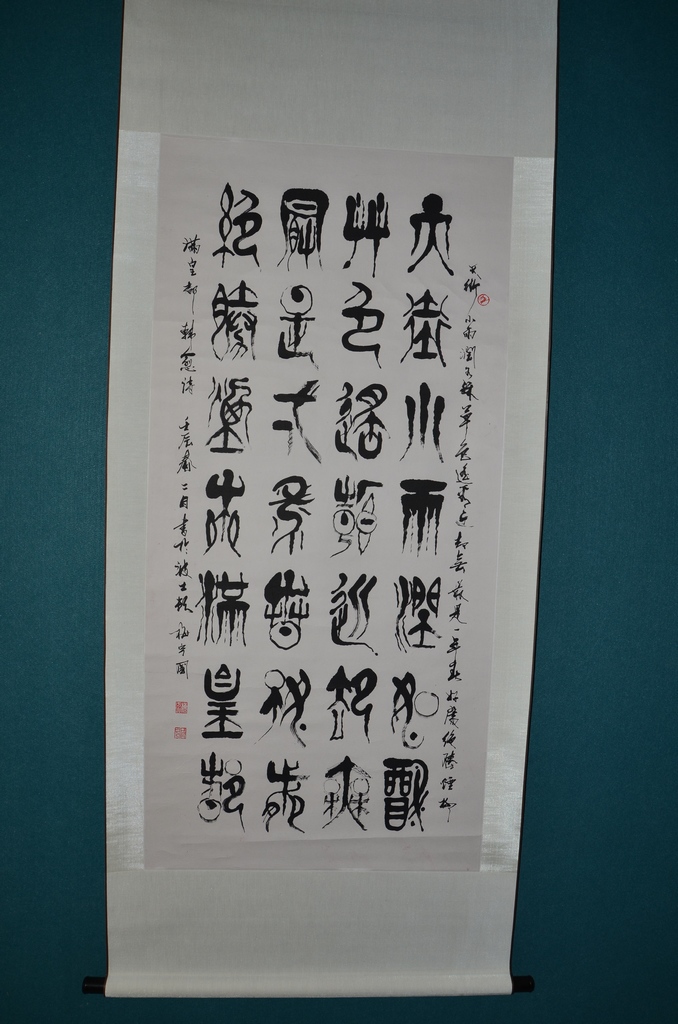 天街小雨潤如酥草色遙看近却無最是一年春好處絕勝煙柳
天街小雨潤如酥
艸色遙看近却無
最是弌年春好處
絕勝煙柳滿皇都
滿皇都 韓愈詩 壬辰春二月書於波士頓